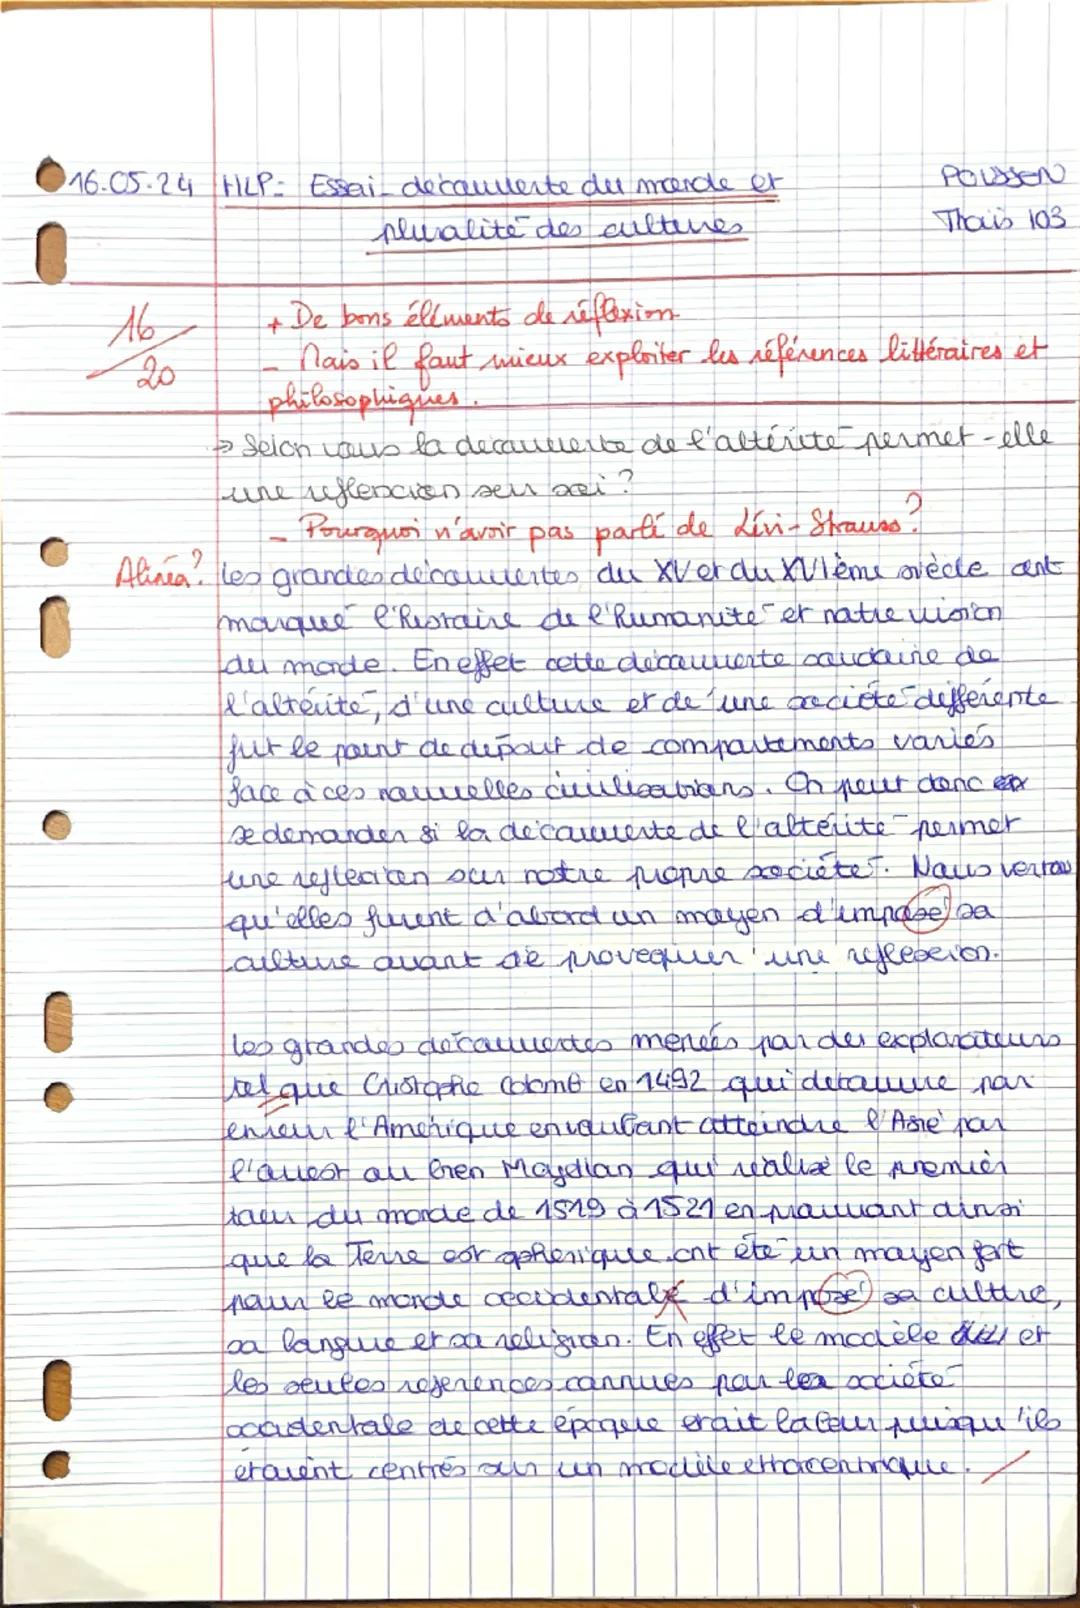 16.05.24 HLP: Essai - découverte du monde et POUSSEN
pluralité des cultures Thaïs 103
16/20
+ De bons éléments de réflexion
- Mais il faut mieux exploiter les références littéraires et
philosophiques.
→ Selon vous la découverte de l'altérité permet-elle
une reflexion sur soi ?
- Pourquoi n'avoir pas parlé de Lévi-Strauss ?
Alinéa? Les grandes découvertes du XV et du XVIème siècle ont
marqué l'histoire de l'humanité et notre vision
du monde. En effet cette découverte soudaine de
l'altérité, d'une culture et de une société différente
fut le point de départ de comportements variés
face à ces nouvelles civilisations. On peut donc
se demander si la découverte de l'altérité permet
une reflexion sur notre propre société. Nous verrons
qu'elles furent d'abord un moyen d'imposé sa
culture avant de provoquer une reflexion.
Les grandes découvertes menées par des explorateurs
tel que Christophe Colomb en 1492 qui découvre par
erreur l'Amérique en voulant atteindre l'Asie par
l'ouest ou bien Magellan qui réalise le premier
tour du monde de 1519 à 1521 en prouvant ainsi
que la Terre est sphérique ont été un moyen fort
pour le monde occidental d'imposé sa culture,
sa langue et sa religion. En effet le modèle et
les seules references connues par les société
occidentale de cette époque était la leur puisqu'ils
étaient centrés sur un modèle ethnocentrique.